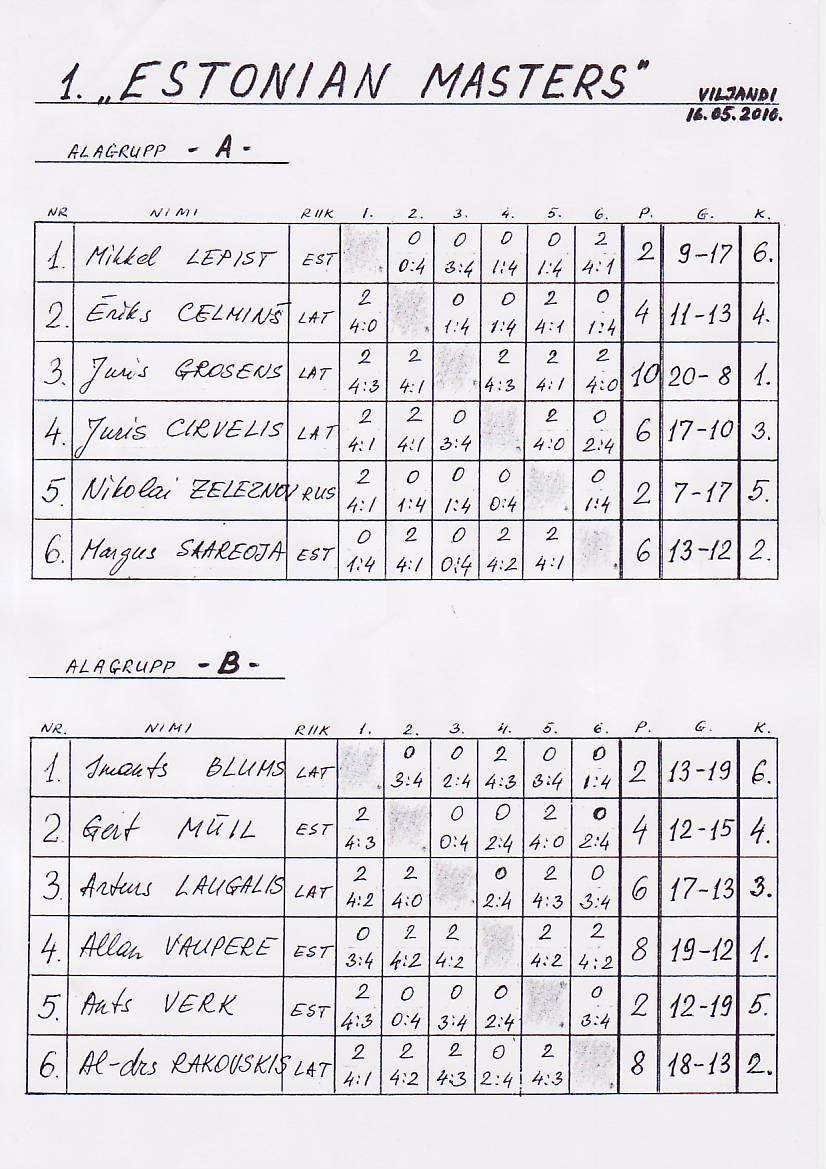 1. „ESTONIAN MASTERS"
VILJANDI
16.05.2010.
ALAGRUPP - A -
NR NIMI RIIK 1. 2. 3. 4. 5. 6. P. G. K.
1. Mikkel LEPIST EST 0 0 0 0 2 2 9-17 6.
0:4 3:4 1:4 1:4 4:1
2. Ēriks CELMINŠ LAT 2 0 0 2 0 4 11-13 4.
4:0 1:4 1:4 4:1 1:4
3. Juris GROSENS LAT 2 2 2 2 2 10 20-8 1.
4:3 4:1 4:3 4:1 4:0
4. Juris CIRVELIS LAT 2 2 0 2 0 6 17-10 3.
4:1 4:1 3:4 4:0 2:4
5. Nikolai ZELEZNOV RUS 2 0 0 0 0 2 7-17 5.
4:1 1:4 1:4 0:4 1:4
6. Margus SAAREOJA EST 0 2 0 2 2 6 13-12 2.
1:4 4:1 0:4 4:2 4:1
ALAGRUPP - B -
NR. NIMI RIIK 1. 2. 3. 4. 5. 6. P. G. K.
1. Imants BLUMS LAT 0 0 2 0 0 2 13-19 6.
3:4 2:4 4:3 3:4 1:4
2. Gert MÜIL EST 2 0 0 2 0 4 12-15 4.
4:3 0:4 2:4 4:0 2:4
3. Arturs LAUGALIS LAT 2 2 0 2 0 6 17-13 3.
4:2 4:0 2:4 4:3 3:4
4. Allan VAUPERE EST 0 2 2 2 2 8 19-12 1.
3:4 4:2 4:2 4:2 4:2
5. Ants VERK EST 2 0 0 0 0 2 12-19 5.
4:3 0:4 3:4 2:4 3:4
6. Al-drs RAKOVSKIS LAT 2 2 2 0 2 8 18-13 2.
4:1 4:2 4:3 2:4 4:3